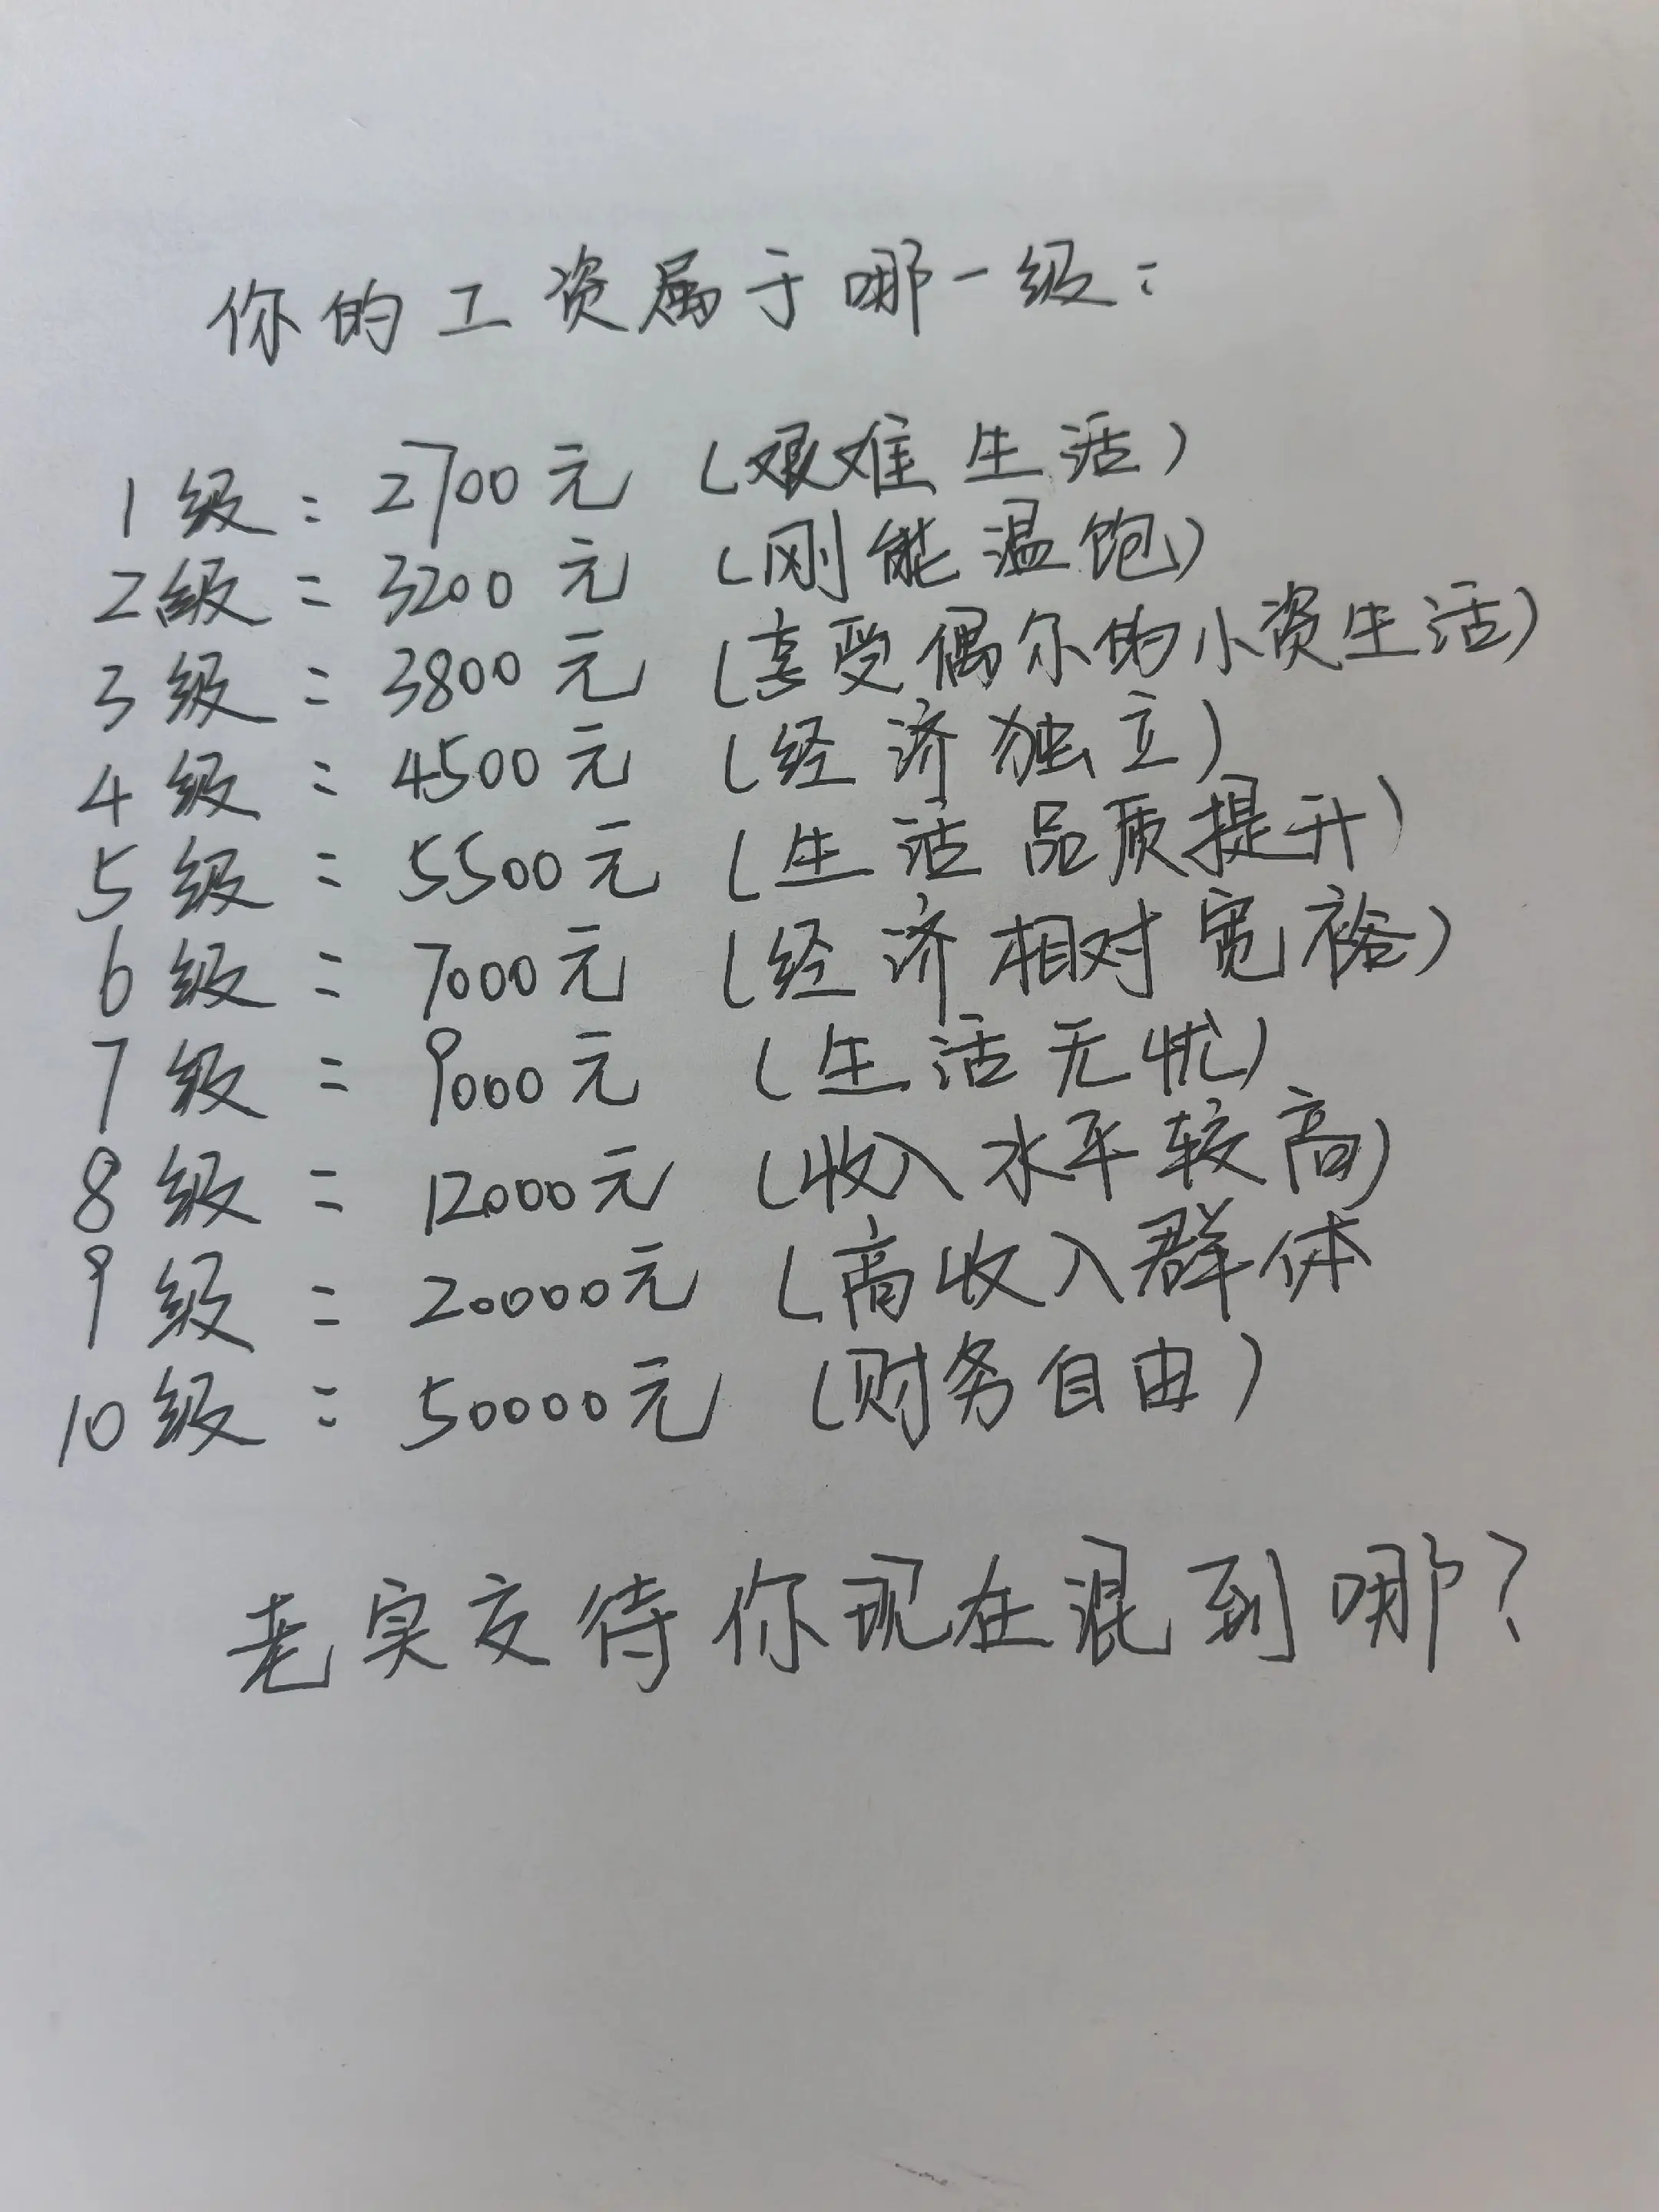 你的工资属于哪一级:
1级:2700元(艰难生活)
2级:3200元(刚能温饱)
3级:3800元(享受偶尔的小资生活)
4级:4500元(经济独立)
5级:5500元(生活品质提升)
6级:7000元(经济相对宽裕)
7级:9000元(生活无忧)
8级:12000元(收入水平较高)
9级:20000元(高收入群体
10级:50000元(财务自由)
老实交待你现在混到哪?